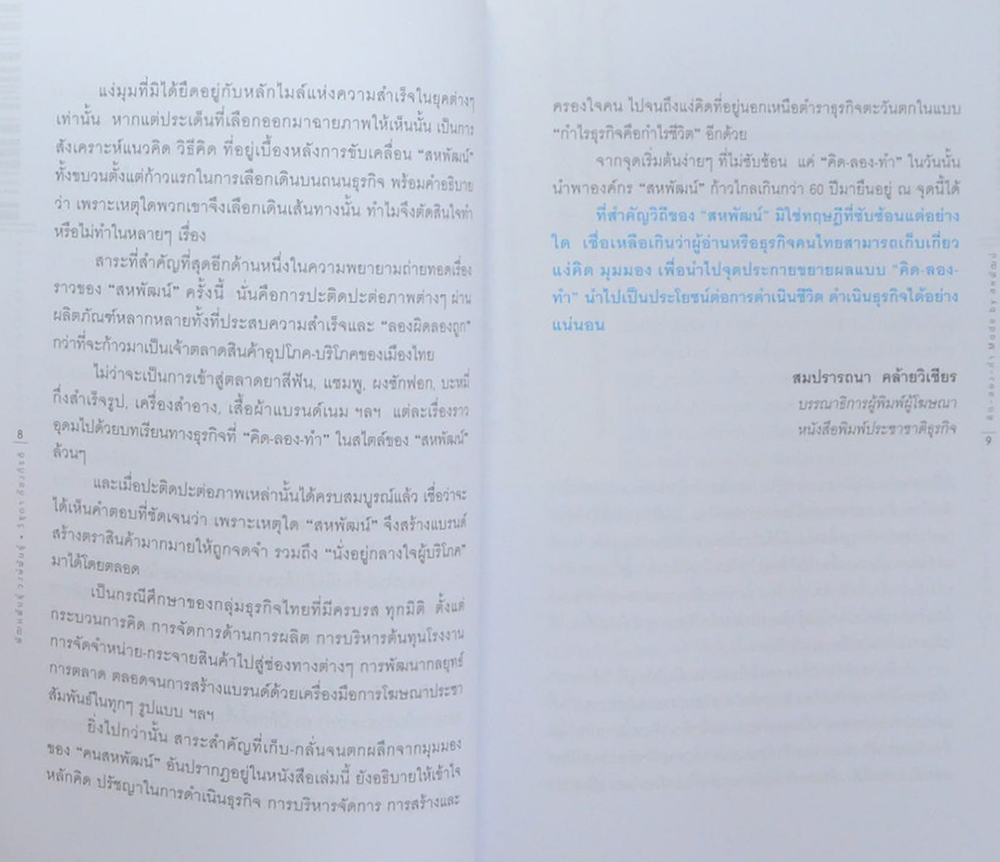 แง่มุมที่มิได้ยึดอยู่กับหลักไมล์แห่งความสำเร็จในยุคต่างๆ
เท่านั้น หากแต่ประเด็นที่เลือกออกมาฉายภาพให้เห็นนั้น เป็นการ
สังเคราะห์แนวคิด วิธีคิด ที่อยู่เบื้องหลังการขับเคลื่อน "สหพัฒน์"
ทั้งขบวนตั้งแต่ก้าวแรกในการเลือกเดินบนถนนธุรกิจ พร้อมคำอธิบาย
ว่า เพราะเหตุใดพวกเขาจึงเลือกเดินเส้นทางนั้น ทำไมจึงตัดสินใจทำ
หรือไม่ทำในหลายๆ เรื่อง
สาระที่สำคัญที่สุดอีกด้านหนึ่งในความพยายามถ่ายทอดเรื่อง
ราวของ "สหพัฒน์" ครั้งนี้ นั่นคือการปะติดปะต่อภาพต่างๆ ผ่าน
ผลิตภัณฑ์หลากหลายทั้งที่ประสบความสำเร็จและ "ลองผิดลองถูก"
กว่าที่จะก้าวมาเป็นเจ้าตลาดสินค้าอุปโภค-บริโภคของเมืองไทย
ไม่ว่าจะเป็นการเข้าสู่ตลาดยาสีฟัน, แชมพู, ผงซักฟอก, บะหมี่
กึ่งสำเร็จรูป, เครื่องสำอาง, เสื้อผ้าแบรนด์เนม ฯลฯ แต่ละเรื่องราว
อุดมไปด้วยบทเรียนทางธุรกิจที่ "คิด-ลอง-ทำ" ในสไตล์ของ "สหพัฒน์"
ล้วนๆ
และเมื่อปะติดปะต่อภาพเหล่านั้นได้ครบสมบูรณ์แล้ว เชื่อว่าจะ
ได้เห็นคำตอบที่ชัดเจนว่า เพราะเหตุใด "สหพัฒน์" จึงสร้างแบรนด์
สร้างตราสินค้ามากมายให้ถูกจดจำ รวมถึง "นั่งอยู่กลางใจผู้บริโภค"
มาได้โดยตลอด
เป็นกรณีศึกษาของกลุ่มธุรกิจไทยที่มีครบรส ทุกมิติ ตั้งแต่
กระบวนการคิด การจัดการด้านการผลิต การบริหารต้นทุนโรงงาน
การจัดจำหน่าย-กระจายสินค้าไปสู่ช่องทางต่างๆ การพัฒนากลยุทธ์
การตลาด ตลอดจนการสร้างแบรนด์ด้วยเครื่องมือการโฆษณาประชา
สัมพันธ์ในทุกๆ รูปแบบ ฯลฯ
ยิ่งไปกว่านั้น สาระสำคัญที่เก็บ-กลั่นจนตกผลึกจากมุมมอง
ของ "คนสหพัฒน์" อันปรากฏอยู่ในหนังสือเล่มนี้ ยังอธิบายให้เข้าใจ
หลักคิด ปรัชญาในการดำเนินธุรกิจ การบริหารจัดการ การสร้างและ
8
ครองใจคน ไปจนถึงแง่คิดที่อยู่นอกเหนือตำราธุรกิจตะวันตกในแบบ
"กำไรธุรกิจคือกำไรชีวิต" อีกด้วย
จากจุดเริ่มต้นง่ายๆ ที่ไม่ซับซ้อน แค่ "คิด-ลอง-ทำ" ในวันนั้น
นำพาองค์กร "สหพัฒน์" ก้าวไกลเกินกว่า 60 ปีมายืนอยู่ ณ จุดนี้ได้
ที่สำคัญวิถีของ "สหพัฒน์" มิใช่ทฤษฎีที่ซับซ้อนแต่อย่าง
ใด เชื่อเหลือเกินว่าผู้อ่านหรือธุรกิจคนไทยสามารถเก็บเกี่ยว
แง่คิด มุมมอง เพื่อนำไปจุดประกายขยายผลแบบ "คิด-ลอง-
ทำ" นำไปเป็นประโยชน์ต่อการดำเนินชีวิต ดำเนินธุรกิจได้อย่าง
แน่นอน
สมปรารถนา คล้ายวิเชียร
บรรณาธิการผู้พิมพ์ผู้โฆษณา
หนังสือพิมพ์ประชาชาติธุรกิจ
คิด-ลอง-ทำ Made by สหพัฒน์
9